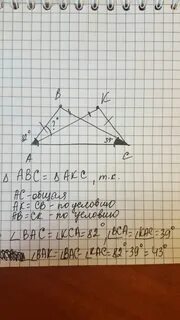 B
K
?°
82°
39°
A
C
△ ABC = △ AKC , т.к.
AC - общая
AK = CB - по условию
AB = CK - по условию
∠BAC = ∠KCA = 82° , ∠BCA = ∠KAC = 39°
∠BAK = ∠BAC - ∠KAC = 82° - 39° = 43°